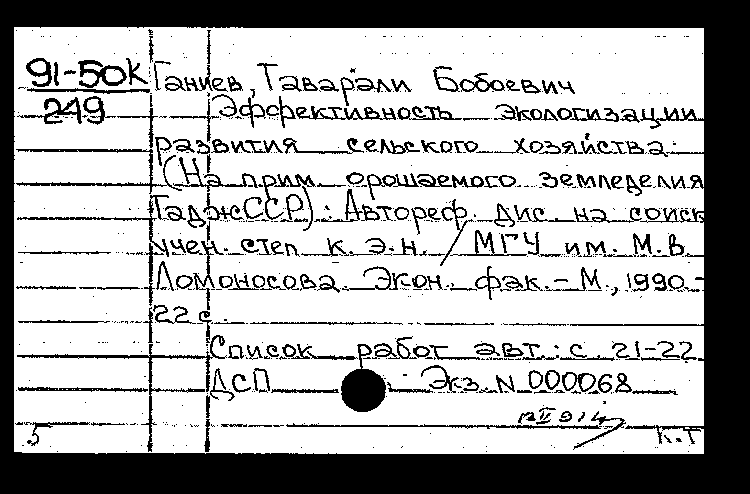 91-50К Ганиев, Таварали Бобоевич
249 Эффективность экологизации
развития сельского хозяйства:
(На прим. орошаемого земледелия
ТаджССР) : Автореф. дис. на соиск
учен. степ к. э. н. / МГУ им. М. В.
Ломоносова. Экон. фак. – М., 1990.-
22 с.
Список работ авт.: с. 21-22
ДСП : Экз. N 000068
5 К.Т